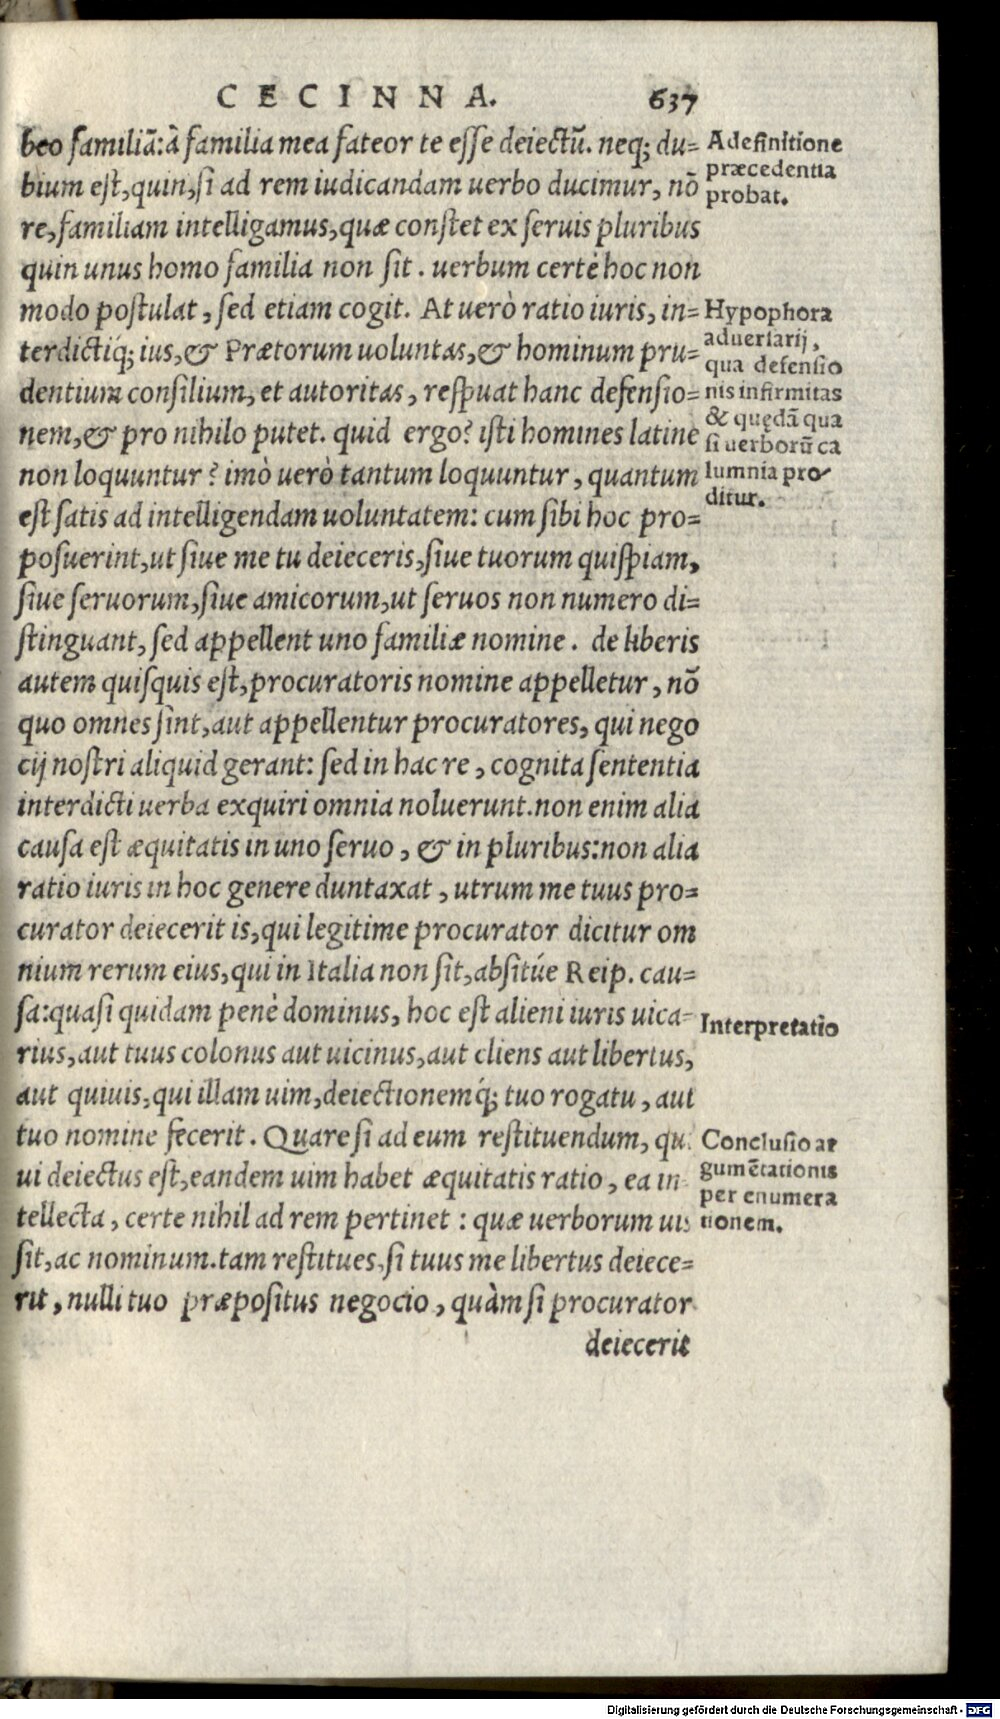 CECINNA. 637
beo familiã: à familia mea fateor te esse deiectũ. neq; du=
bium est, quin, si ad rem iudicandam uerbo ducimur, nõ
re, familiam intelligamus, quæ constet ex seruis pluribus
quin unus homo familia non sit. uerbum certè hoc non
modo postulat, sed etiam cogit. At uerò ratio iuris, in=
terdictiq́; ius, & Prætorum uoluntas, & hominum pru=
dentium consilium, et autoritas, respuat hanc defensio=
nem, & pro nihilo putet. quid ergo? isti homines latine
non loquuntur? imò uerò tantum loquuntur, quantum
est satis ad intelligendam uoluntatem: cum sibi hoc pro=
posuerint, ut siue me tu deieceris, siue tuorum quispiam,
siue seruorum, siue amicorum, ut seruos non numero di=
stinguant, sed appellent uno familiæ nomine. de liberis
autem quisquis est, procuratoris nomine appelletur, nõ
quo omnes sint, aut appellentur procuratores, qui nego
cij nostri aliquid gerant: sed in hac re, cognita sententia
interdicti uerba exquiri omnia noluerunt. non enim alia
causa est æquitatis in uno seruo, & in pluribus: non alia
ratio iuris in hoc genere duntaxat, utrum me tuus pro=
curator deiecerit is, qui legitime procurator dicitur om
nium rerum eius, qui in Italia non sit, absitúe Reip. cau=
sa: quasi quidam penè dominus, hoc est alieni iuris uica=
rius, aut tuus colonus aut uicinus, aut cliens aut libertus,
aut quiuis, qui illam uim, deiectionemq́; tuo rogatu, aut
tuo nomine fecerit. Quare si ad eum restituendum, qui
ui deiectus est, eandem uim habet æquitatis ratio, ea in=
tellecta, certe nihil ad rem pertinet: quæ uerborum uis
sit, ac nominum. tam restitues, si tuus me libertus deiece=
rit, nulli tuo præpositus negocio, quàm si procurator
deiecerit
A definitione
præcedentia
probat.
Hypophora
aduersarij,
qua defensio
nis infirmitas
& quędã qua
si uerborũ ca
lumnia pro
ditur.
Interpretatio
Conclusio ar
gumẽtationis
per enumera
tionem.
Digitalisierung gefördert durch die Deutsche Forschungsgemeinschaft - DFG